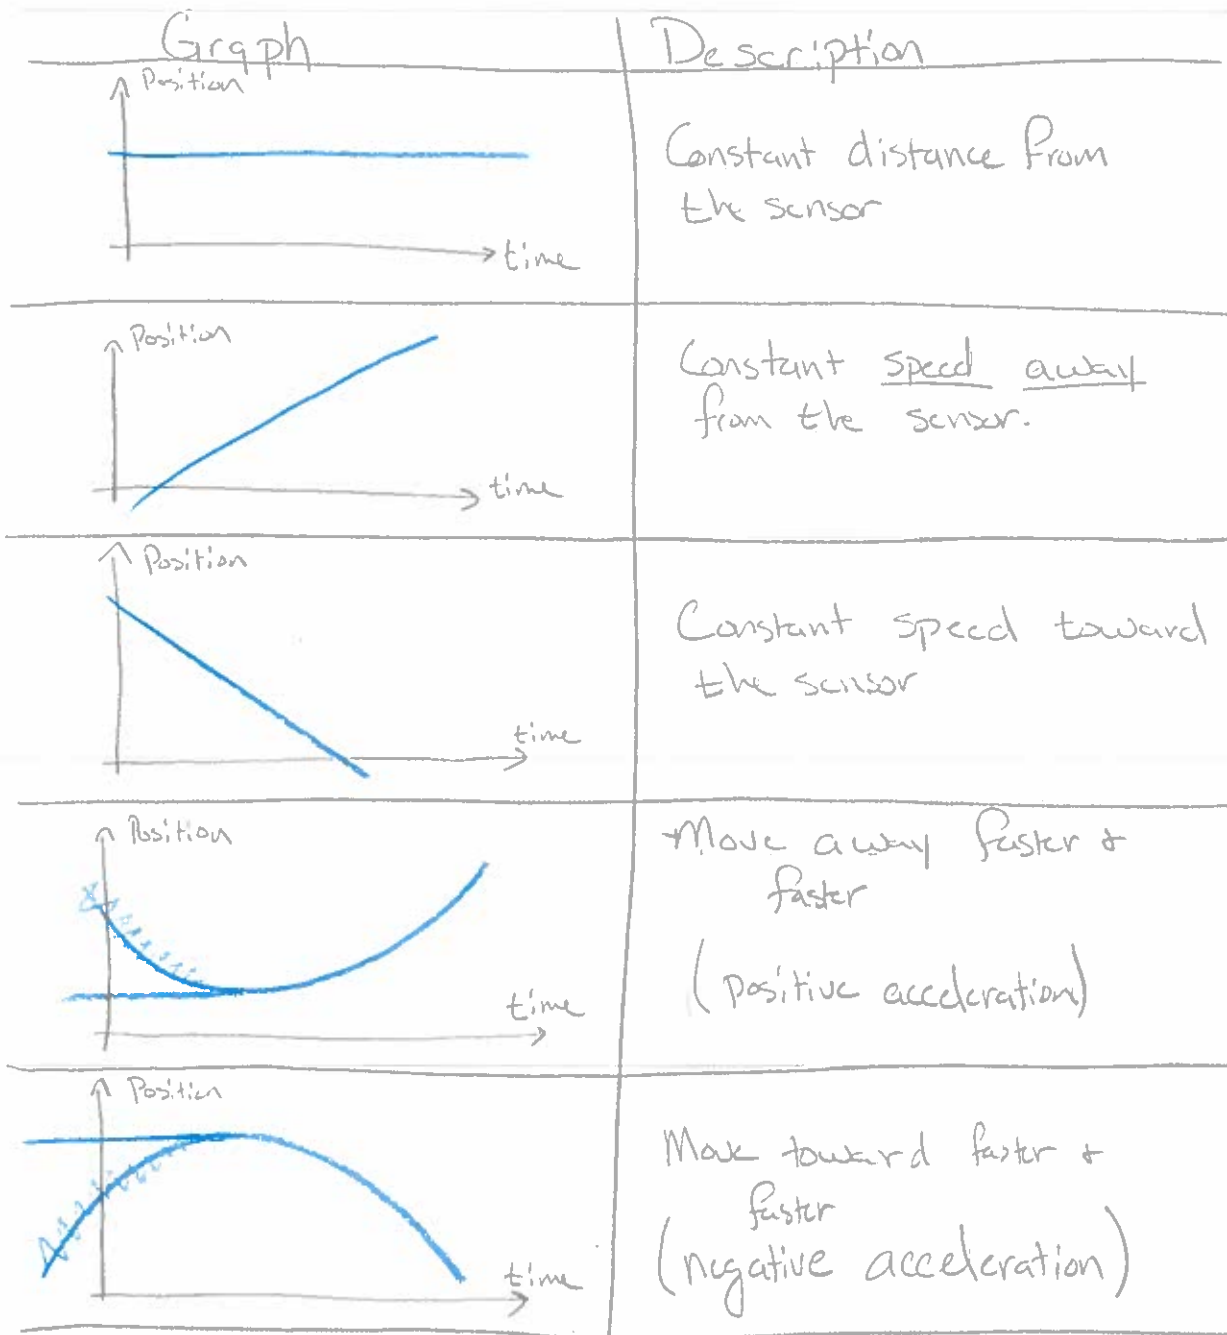 Graph
Description
Position
time
Constant distance from
the sensor
Position
time
Constant speed away
from the sensor.
Position
time
Constant speed toward
the sensor
Position
time
Move away faster &
faster
(positive acceleration)
Position
time
Move toward faster &
faster
(negative acceleration)